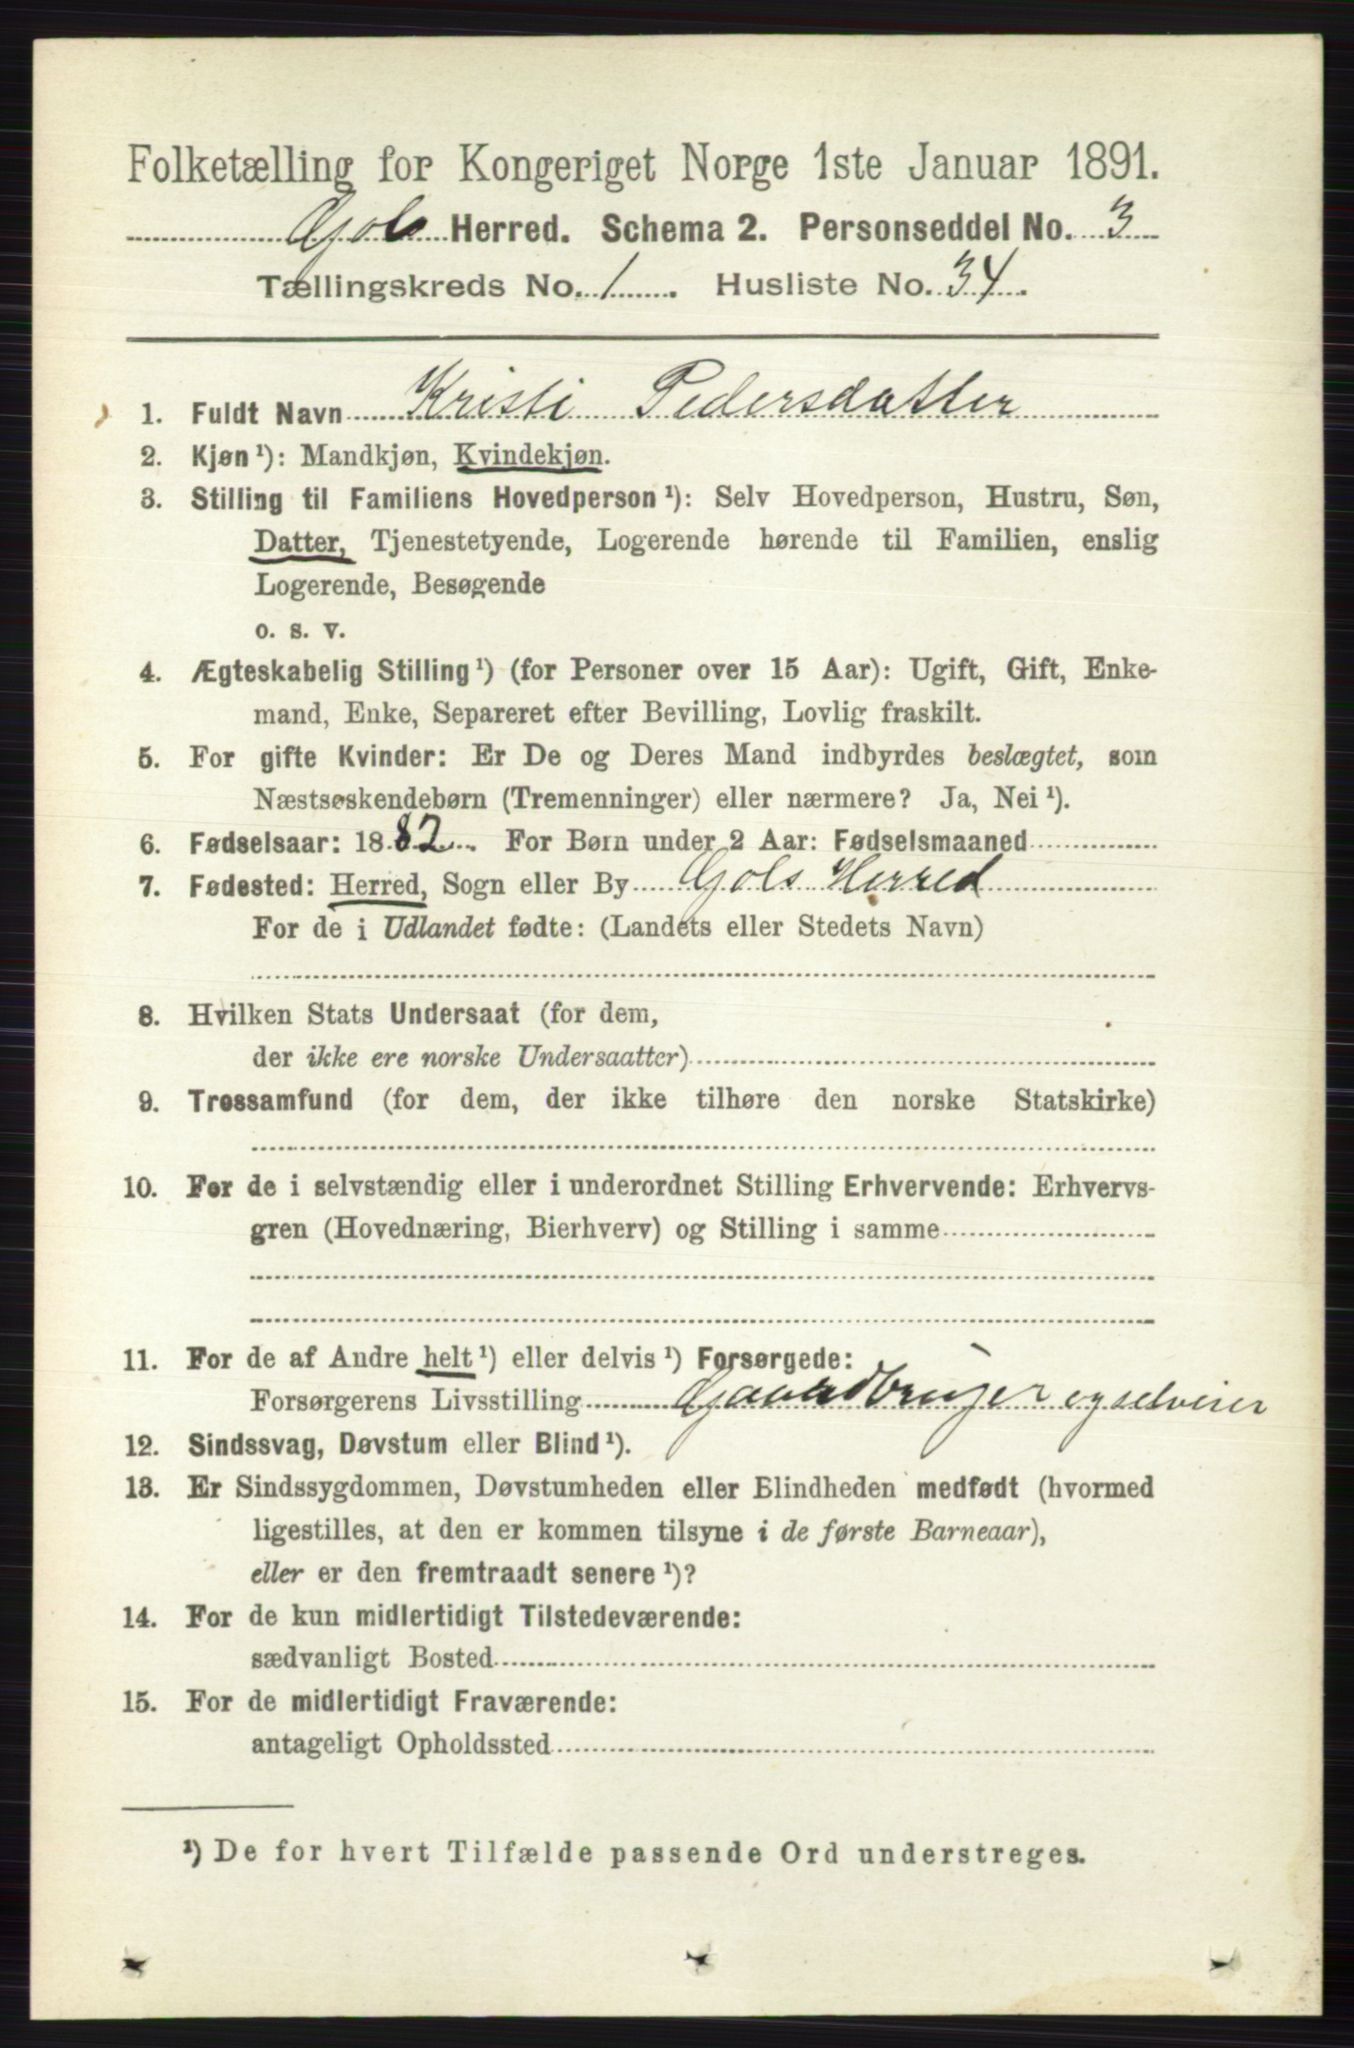 Folketælling for Kongeriget Norge 1ste Januar 1891.
Gols Herred. Schema 2. Personseddel No. 3
Tællingskreds No. 1 . Husliste No. 34.
1. Fuldt Navn Kristi Pedersdatter
2. Kjøn ¹): Mandkjøn, Kvindekjøn.
3. Stilling til Familiens Hovedperson ¹): Selv Hovedperson, Hustru, Søn,
Datter, Tjenestetyende, Logerende hørende til Familien, enslig
Logerende, Besøgende
o. s. v.
4. Ægteskabelig Stilling ¹) (for Personer over 15 Aar): Ugift, Gift, Enke-
mand, Enke, Separeret efter Bevilling, Lovlig fraskilt.
5. For gifte Kvinder: Er De og Deres Mand indbyrdes beslægtet, som
Næstsøskendebørn (Tremenninger) eller nærmere? Ja, Nei ¹).
6. Fødselsaar: 1882. For Børn under 2 Aar: Fødselsmaaned
7. Fødested: Herred, Sogn eller By Gols Herred
For de i Udlandet fødte: (Landets eller Stedets Navn)
8. Hvilken Stats Undersaat (for dem,
der ikke ere norske Undersaatter)
9. Trossamfund (for dem, der ikke tilhøre den norske Statskirke)
10. For de i selvstændig eller i underordnet Stilling Erhvervende: Erhvervs-
gren (Hovednæring, Bierhverv) og Stilling i samme
11. For de af Andre helt ¹) eller delvis ¹) Forsørgede:
Forsørgerens Livsstilling Gaardbruger og selveier
12. Sindssvag, Døvstum eller Blind ¹).
13. Er Sindssygdommen, Døvstumheden eller Blindheden medfødt (hvormed
ligestilles, at den er kommen tilsyne i de første Barneaar),
eller er den fremtraadt senere ¹)?
14. For de kun midlertidigt Tilstedeværende:
sædvanligt Bosted
15. For de midlertidigt Fraværende:
antageligt Opholdssted
¹) De for hvert Tilfælde passende Ord understreges.